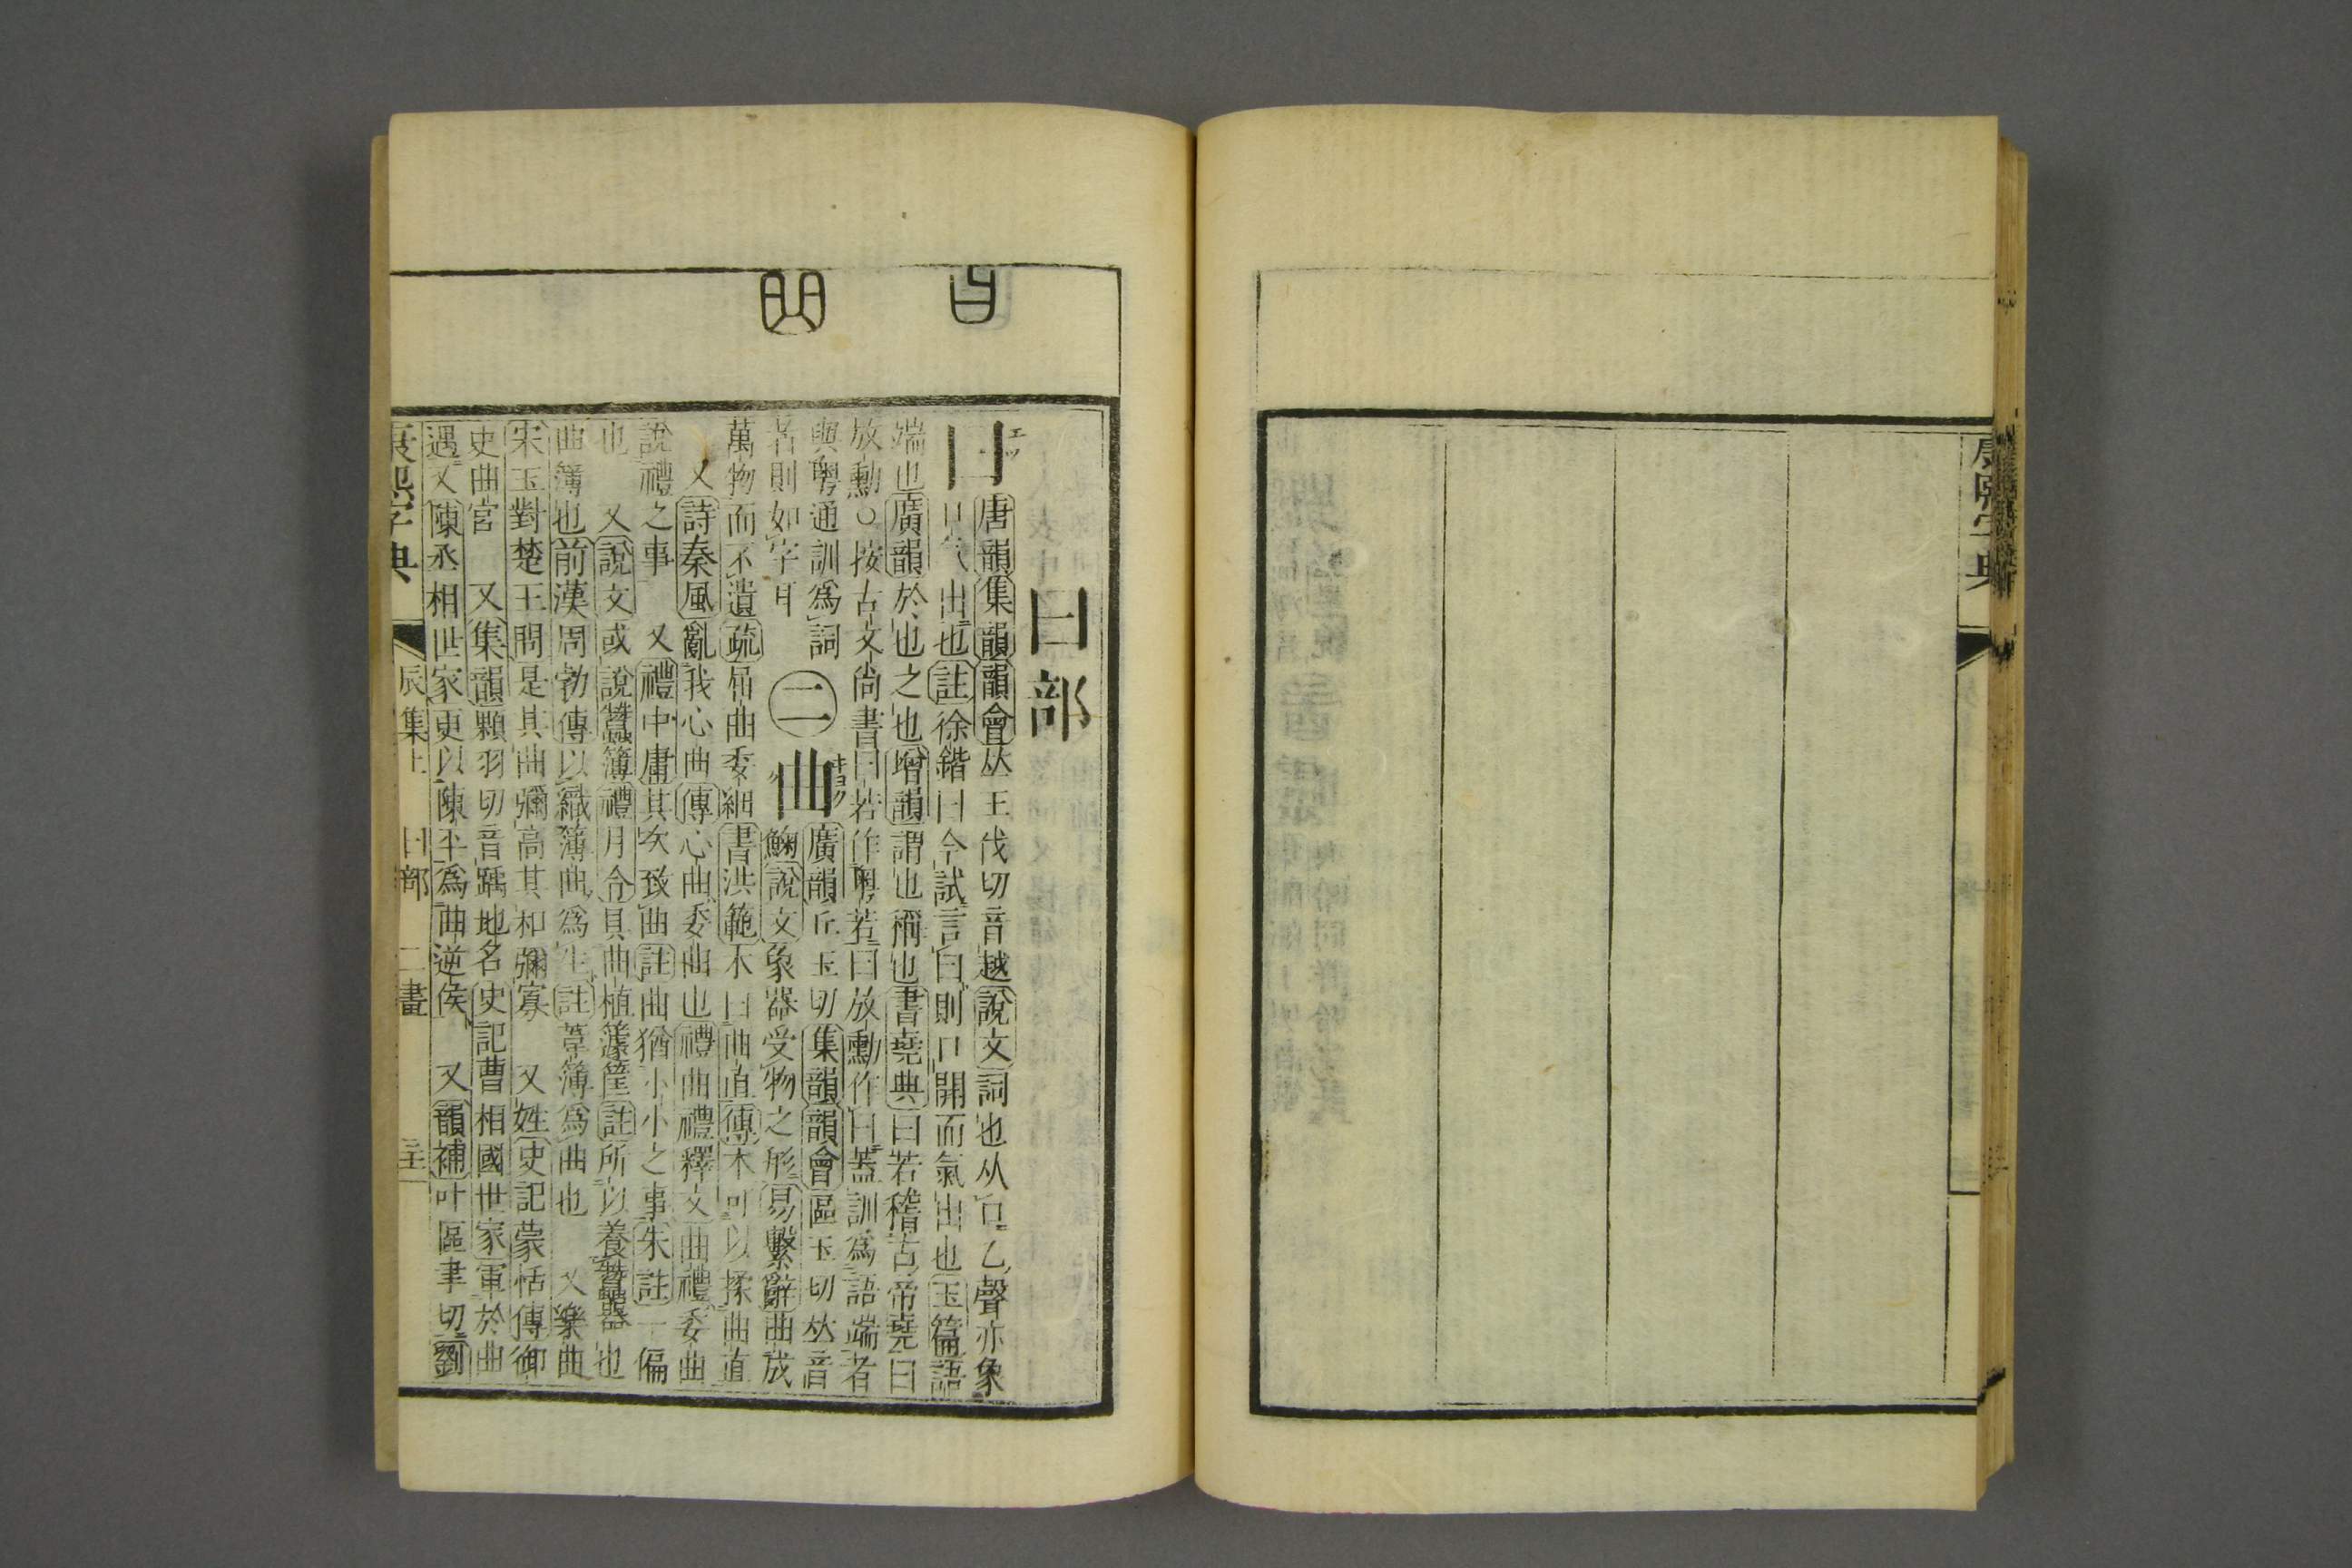 康熙字典
曰部
曰
エツ
唐韻集韻韻會𠀤王伐切音越說文詞也从口乙聲亦象
口气出也註徐鍇曰今試言曰則口開而氣出也玉篇語
端也廣韻於也之也增韻謂也稱也書堯典曰若稽古帝堯曰
放勳○按古文尚書曰若作粵若曰放勳作曰蓋訓爲語端者
與粵通訓爲詞
者則如字耳
二
曲
キヨク
廣韻丘玉切集韻韻會區玉切𠀤音
鞠說文象器受物之形易繫辭曲成
萬物而不遺疏屈曲委細書洪範木曰曲直傳木可以揉曲直
又詩秦風亂我心曲傳心曲委曲也禮曲禮釋文曲禮委曲
說禮之事 又禮中庸其次致曲註曲猶小小之事朱註一偏
也 又說文或說蠶簿禮月令具曲植籧筐註所以養蠶器也
曲簿也前漢周勃傳以織簿曲爲生註葦簿爲曲也 又樂曲
宋玉對楚王問是其曲彌高其和彌寡 又姓史記蒙恬傳御
史曲宮 又集韻顆羽切音踽地名史記曹相國世家軍於曲
遇又陳丞相世家更以陳平爲曲逆侯 又韻補叶區聿切劉
康熙字典 辰集上 曰部 二畫